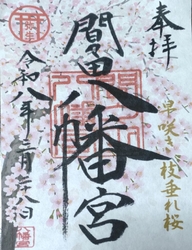 奉拝
早咲き枝垂れ桜
間々田八幡宮
令和八年三月二十八日